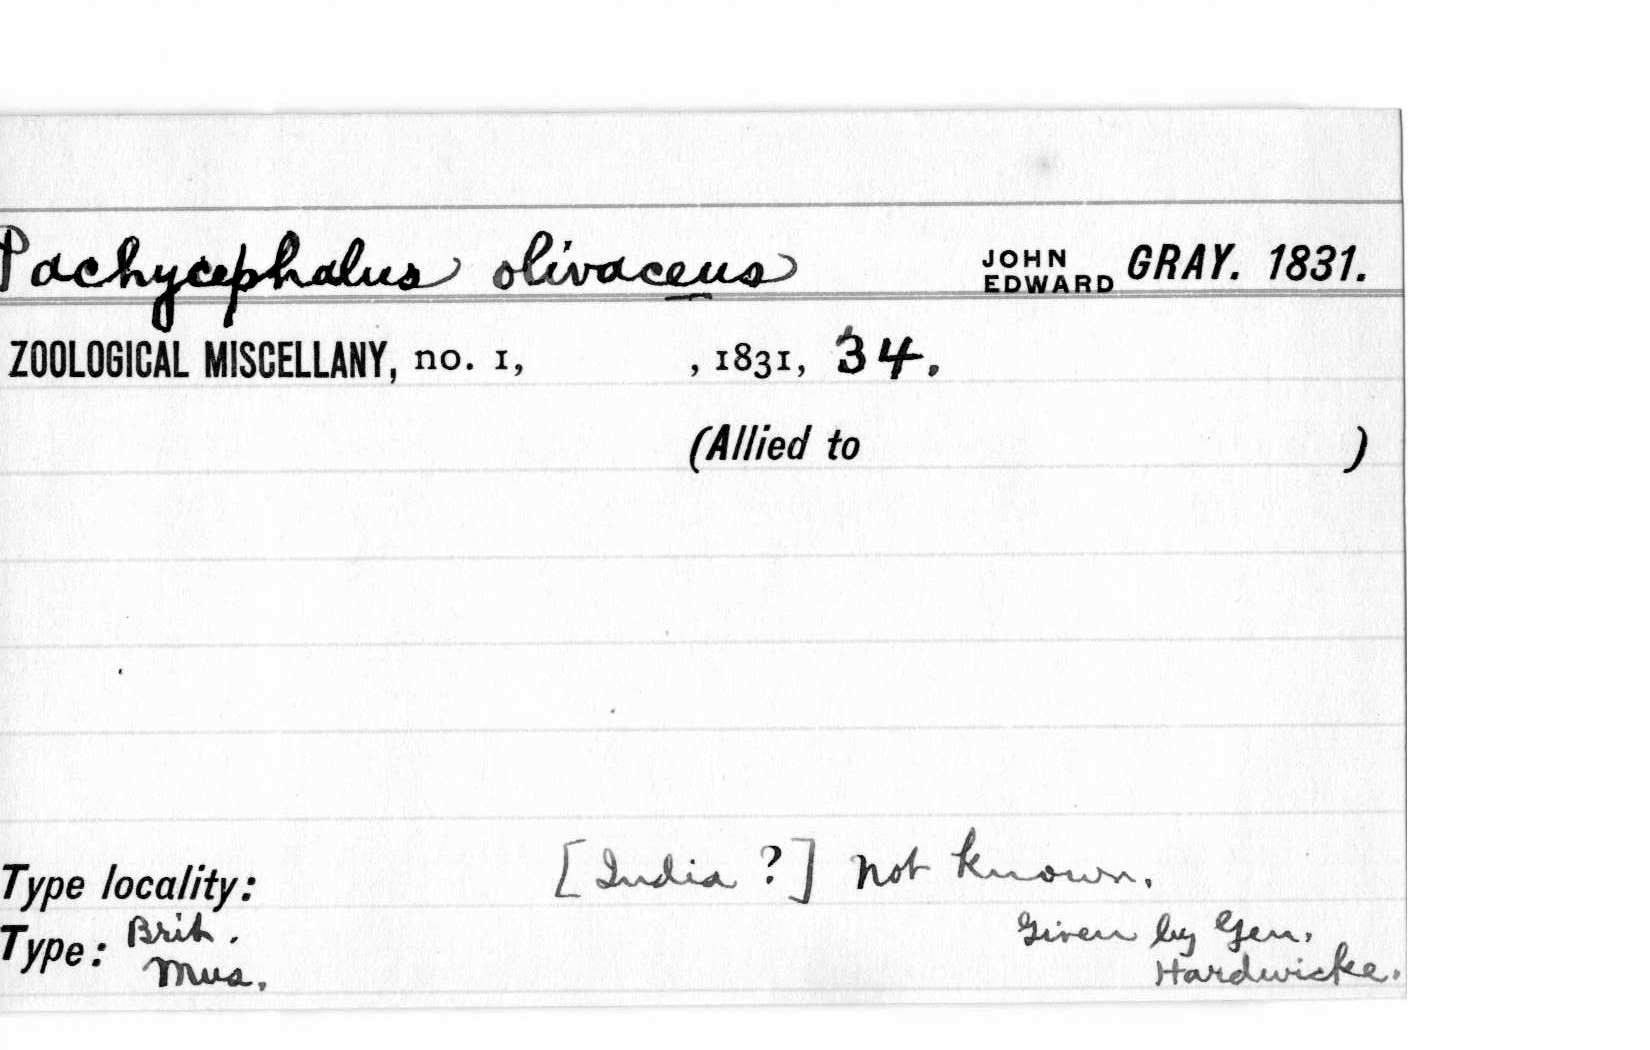 Pachycephalus olivaceus JOHN EDWARD GRAY. 1831.
ZOOLOGICAL MISCELLANY, no. 1, , 1831, 34.
(Allied to )
Type locality: [India ?] not known.
Type: Brit. Mus. Given by Gen. Hardwicke.